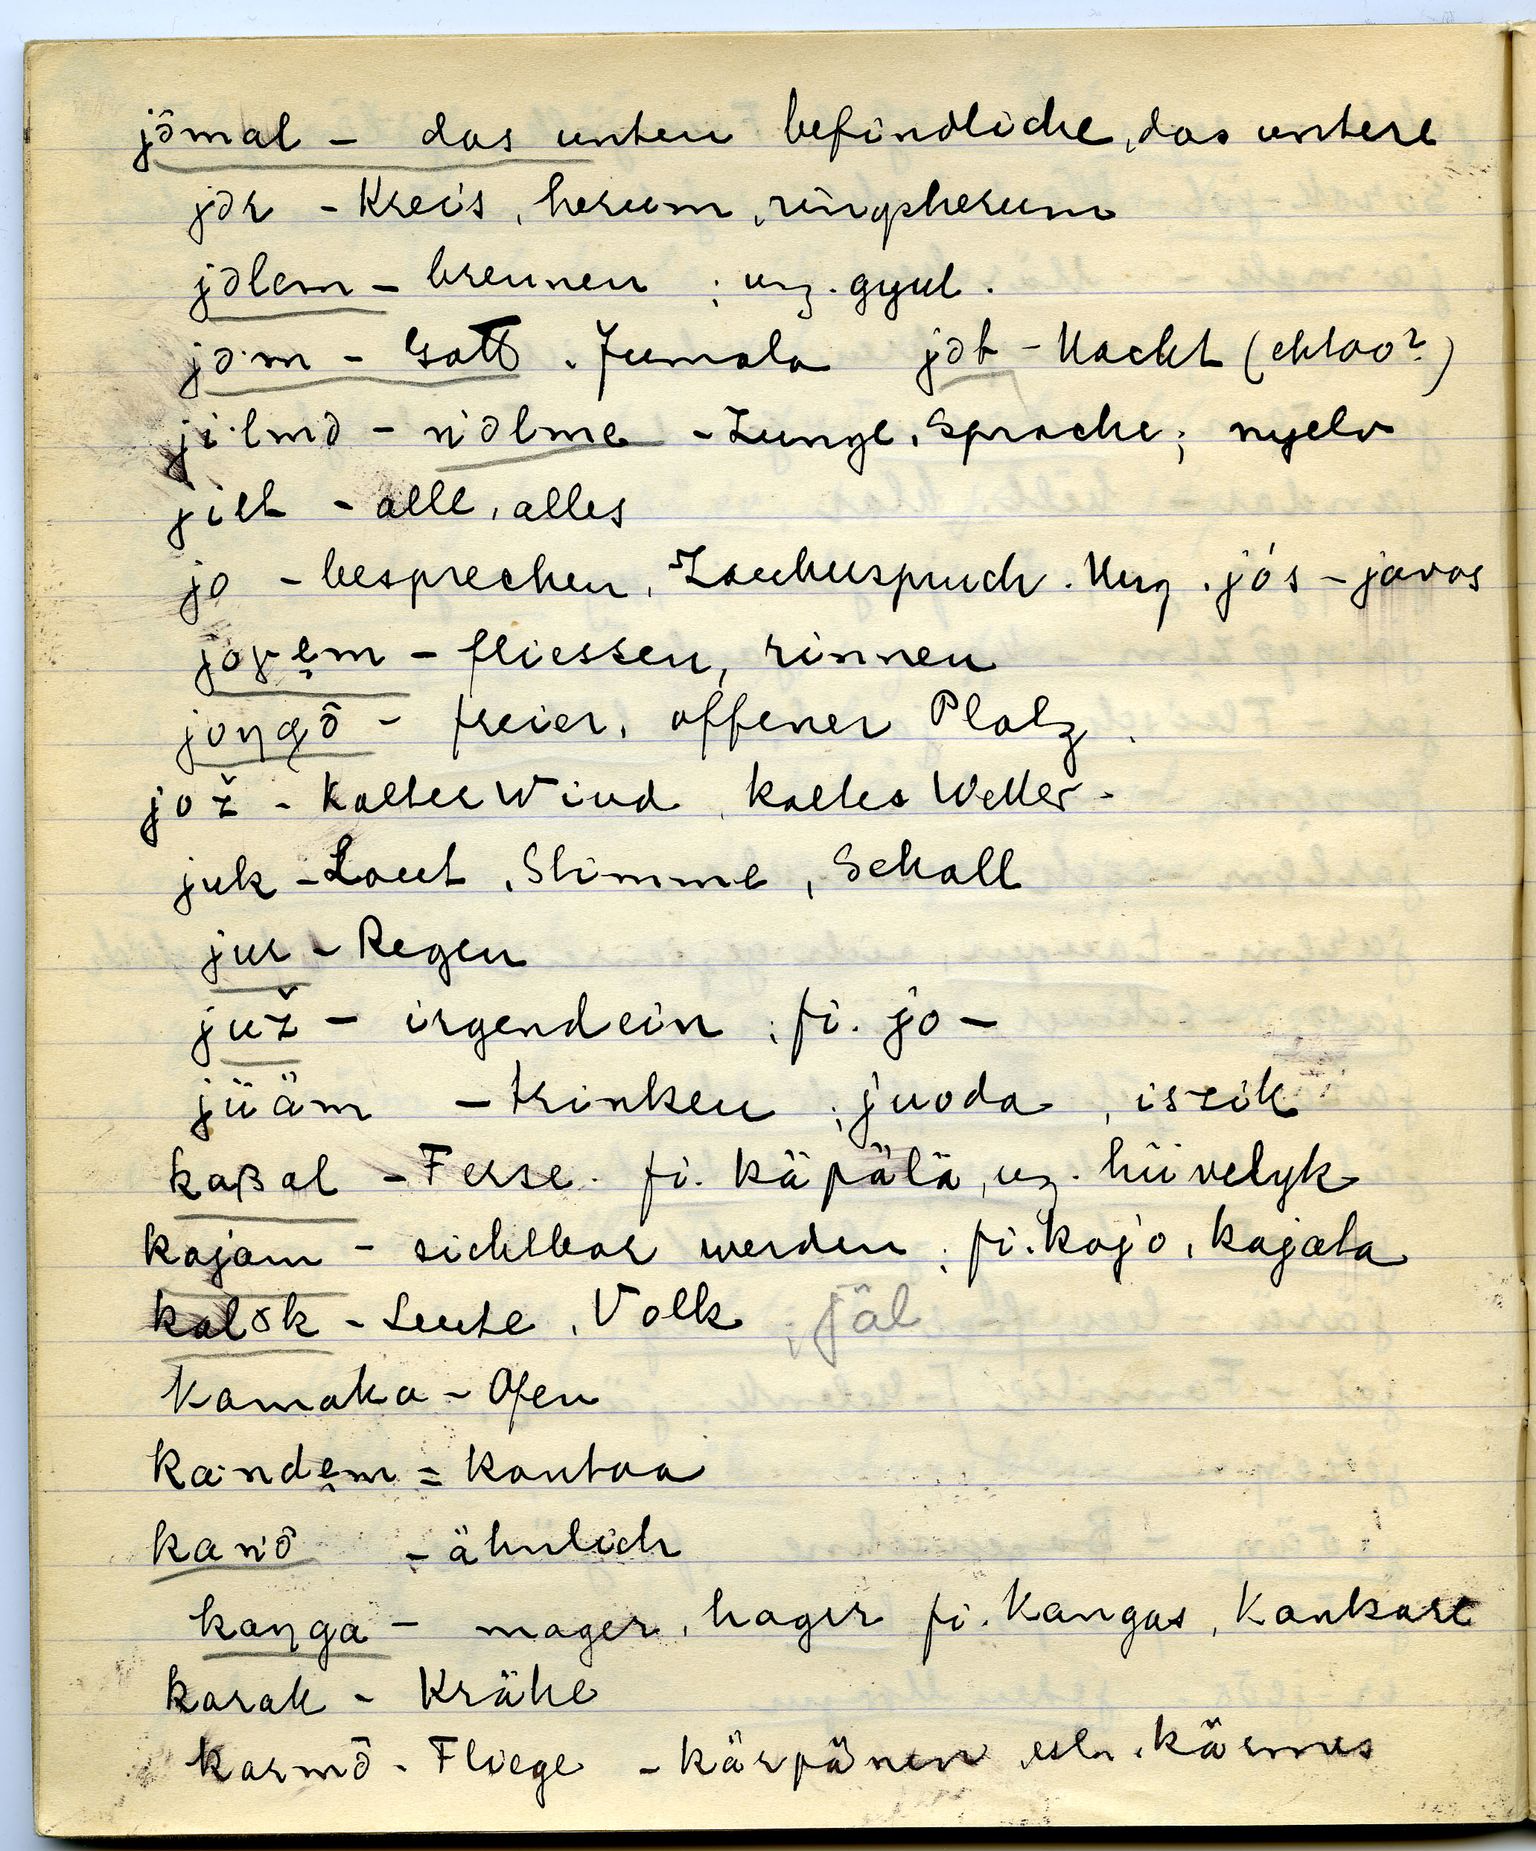 jə̑mal – das unten befindliche, das untere
jə̑r – Kreis, herum, ringsherum
jə̑lem – brennen ; ung. gyul.
jə·m – Gott. Jumala jə̑t – Nacht (ehtoo?)
ji·lmə – ńə̑lme – Zunge, Sprache; nyelv
jilt – alle, alles
jo – besprechen, Zauberspruch. Ung. jós – javas
joγem – fliessen, rinnen
joŋgə̑ – freier, offener Platz.
jož – kalter Wind, kaltes Wetter –
juk – Laut, Stimme, Schall
jur – Regen
juž – irgendein ; fi. jo –
jüäm – trinken ; juoda, iszik
kaβal – Ferse. fi. käpälä, ung. hüvelyk
kajam – sichtbar werden ; fi. kajo, kajata
kalə̑k – Leute, Volk ; jäl
kamaka – Ofen
ka·ndem = kantaa
kańə̑ – ähnlich
kaŋga – mager, hager fi. kangas, kankare
karak – Krähe
karmə̑ – Fliege – kärpänen, estn. kärmes